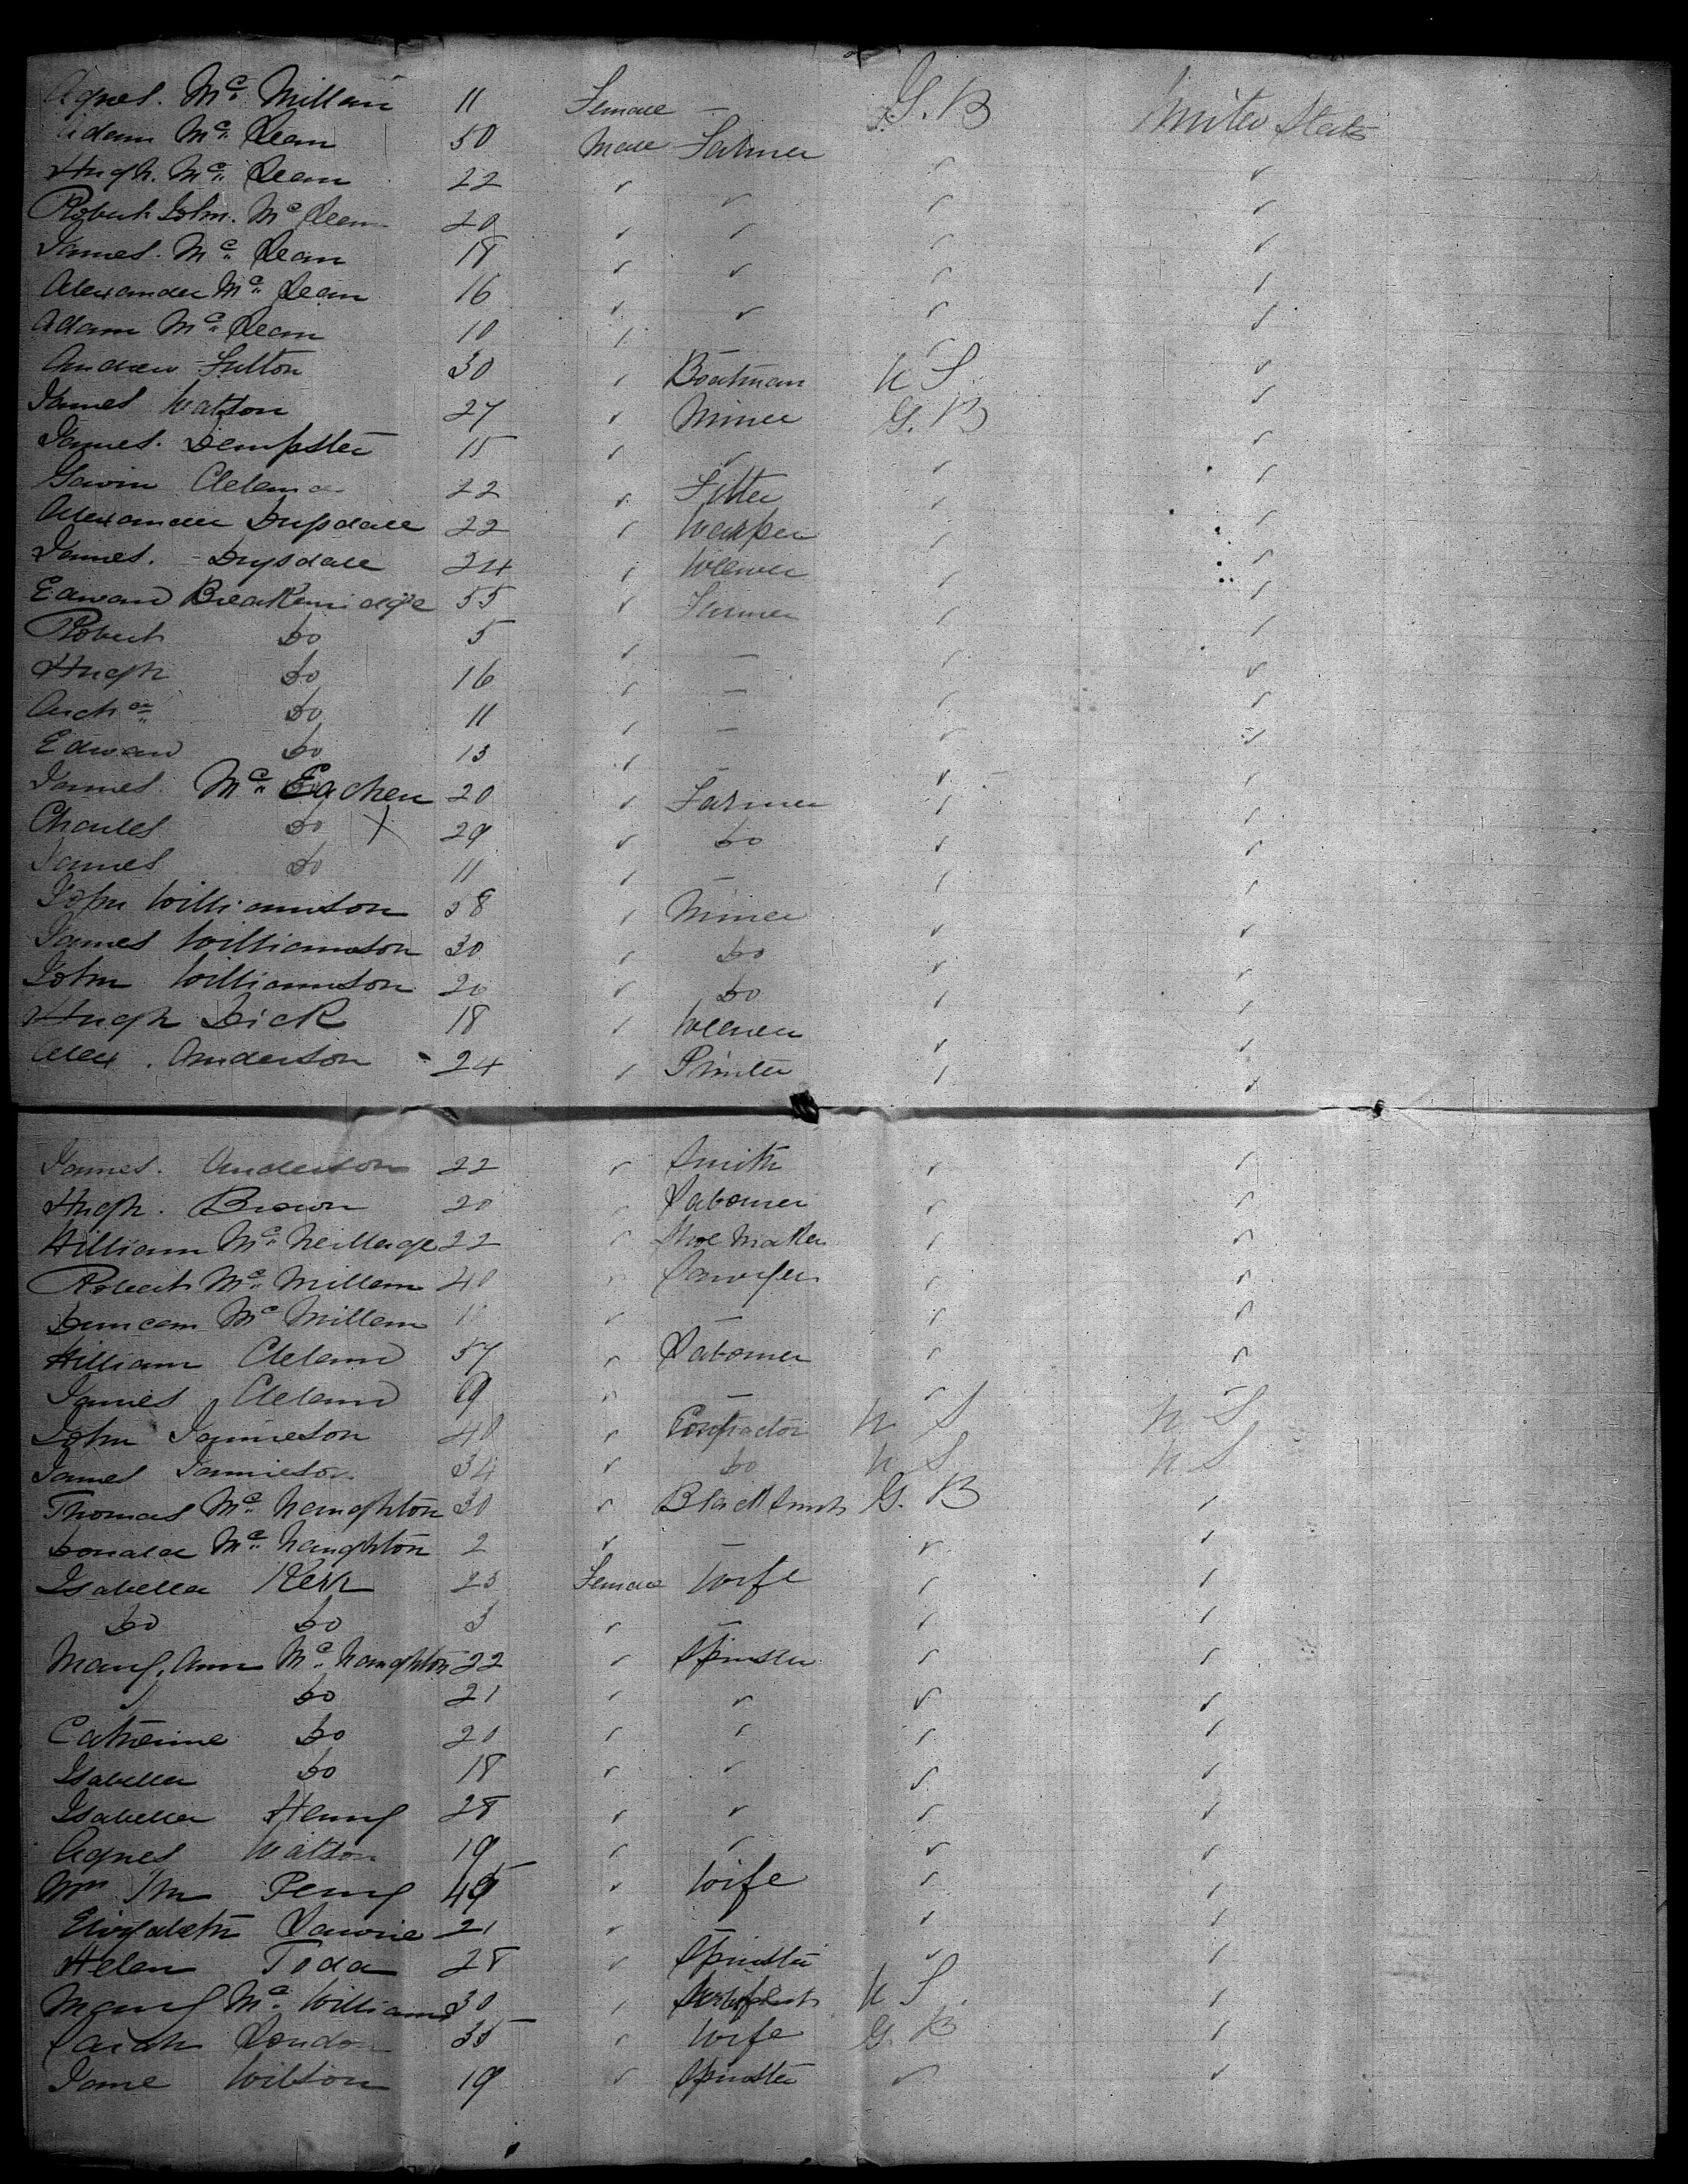 Agnes. Mc. Millan 11 Female — G.B United States
Adam Mc. Lean 50 Male Farmer ✓ ✓
Hugh. Mc. Lean 22 ✓ ✓ ✓ ✓
Robert John. Mc Lean 20 ✓ ✓ ✓ ✓
James. Mc. Lean 18 ✓ ✓ ✓ ✓
Alexander Mc. Lean 16 ✓ ✓ ✓ ✓
Adam Mc. Lean 10 ✓ — ✓ ✓
Andrew Fulton 30 ✓ Boatman U S ✓
James Watson 27 ✓ Miner G.B ✓
James. Dempster 15 ✓ ✓ ✓ ✓
Gavin Cleland 22 ✓ Fitter ✓ ✓
Alexander Drysdale 22 ✓ Warper ✓ ✓
James. Drysdale 24 ✓ Weaver ✓ ✓
Edward Breakenridge 55 ✓ Farmer ✓ ✓
Robert Do 5 ✓ — ✓ ✓
Hugh Do 16 ✓ — ✓ ✓
Arch Do 11 ✓ — ✓ ✓
Edward Do 13 ✓ — ✓ ✓
James. Mc. Eachen 20 ✓ Farmer ✓ ✓
Charles Do X 29 ✓ Do ✓ ✓
James Do 11 ✓ — ✓ ✓
John Williamson 38 ✓ Miner ✓ ✓
James Williamson 30 ✓ Do ✓ ✓
John Williamson 20 ✓ Do ✓ ✓
Hugh Dick 18 ✓ Weaver ✓ ✓
Alex. Anderson 24 ✓ Printer ✓ ✓
James. Anderson 22 ✓ Smith ✓ ✓
Hugh. Brown 20 ✓ Labourer ✓ ✓
William Mc. Neillage 22 ✓ Shoe Maker ✓ ✓
Robert Mc. Millan 40 ✓ Sawyer ✓ ✓
Duncan Mc Millan ✓ — ✓ ✓
William Cleland 57 ✓ Labourer ✓ ✓
James Cleland 19 ✓ — ✓ ✓
John Jamieson 40 ✓ Contractor U S U S
James Jamieson 34 ✓ Do U S U S
Thomas Mc. Naughton 30 ✓ Blacksmith G. B ✓
Donald Mc. Naughton 2 ✓ — ✓ ✓
Isabella Kerr 23 Female Wife ✓ ✓
Do Do 3 ✓ — ✓ ✓
Mary. Ann Mc. Naughton 22 ✓ Spinster ✓ ✓
Do 21 ✓ ✓ ✓ ✓
Catherine Do 20 ✓ ✓ ✓ ✓
Isabella Do 18 ✓ ✓ ✓ ✓
Isabella Henry 28 ✓ ✓ ✓ ✓
Agnes Watson 19 ✓ ✓ ✓ ✓
Mrs Perry ✓ Wife ✓ ✓
Elizabeth Lawrie 21 ✓ — ✓ ✓
Helen Todd 28 ✓ Spinster ✓ ✓
Mary Mc. Williams 30 ✓ U S ✓
Sarah London 35 ✓ Wife G. B ✓
Jane Wilson 19 ✓ Spinster ✓ ✓